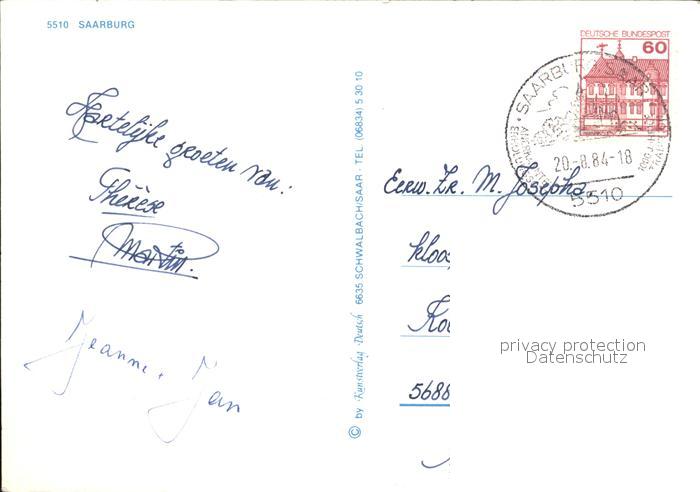 5510 SAARBURG
Hartelijke groeten van:
Thérèse
Martin.
Jeanne + Jan
© by Kunstverlag Deutsch 6635 SCHWALBACH/SAAR · TEL. (06834) 5 30 10
DEUTSCHE BUNDESPOST
60
SAARBURG SAAR
20.-8.84-18
5510
Eerw. Zr. M. Josepha
kloos
Ko
5688
privacy protection
Datenschutz